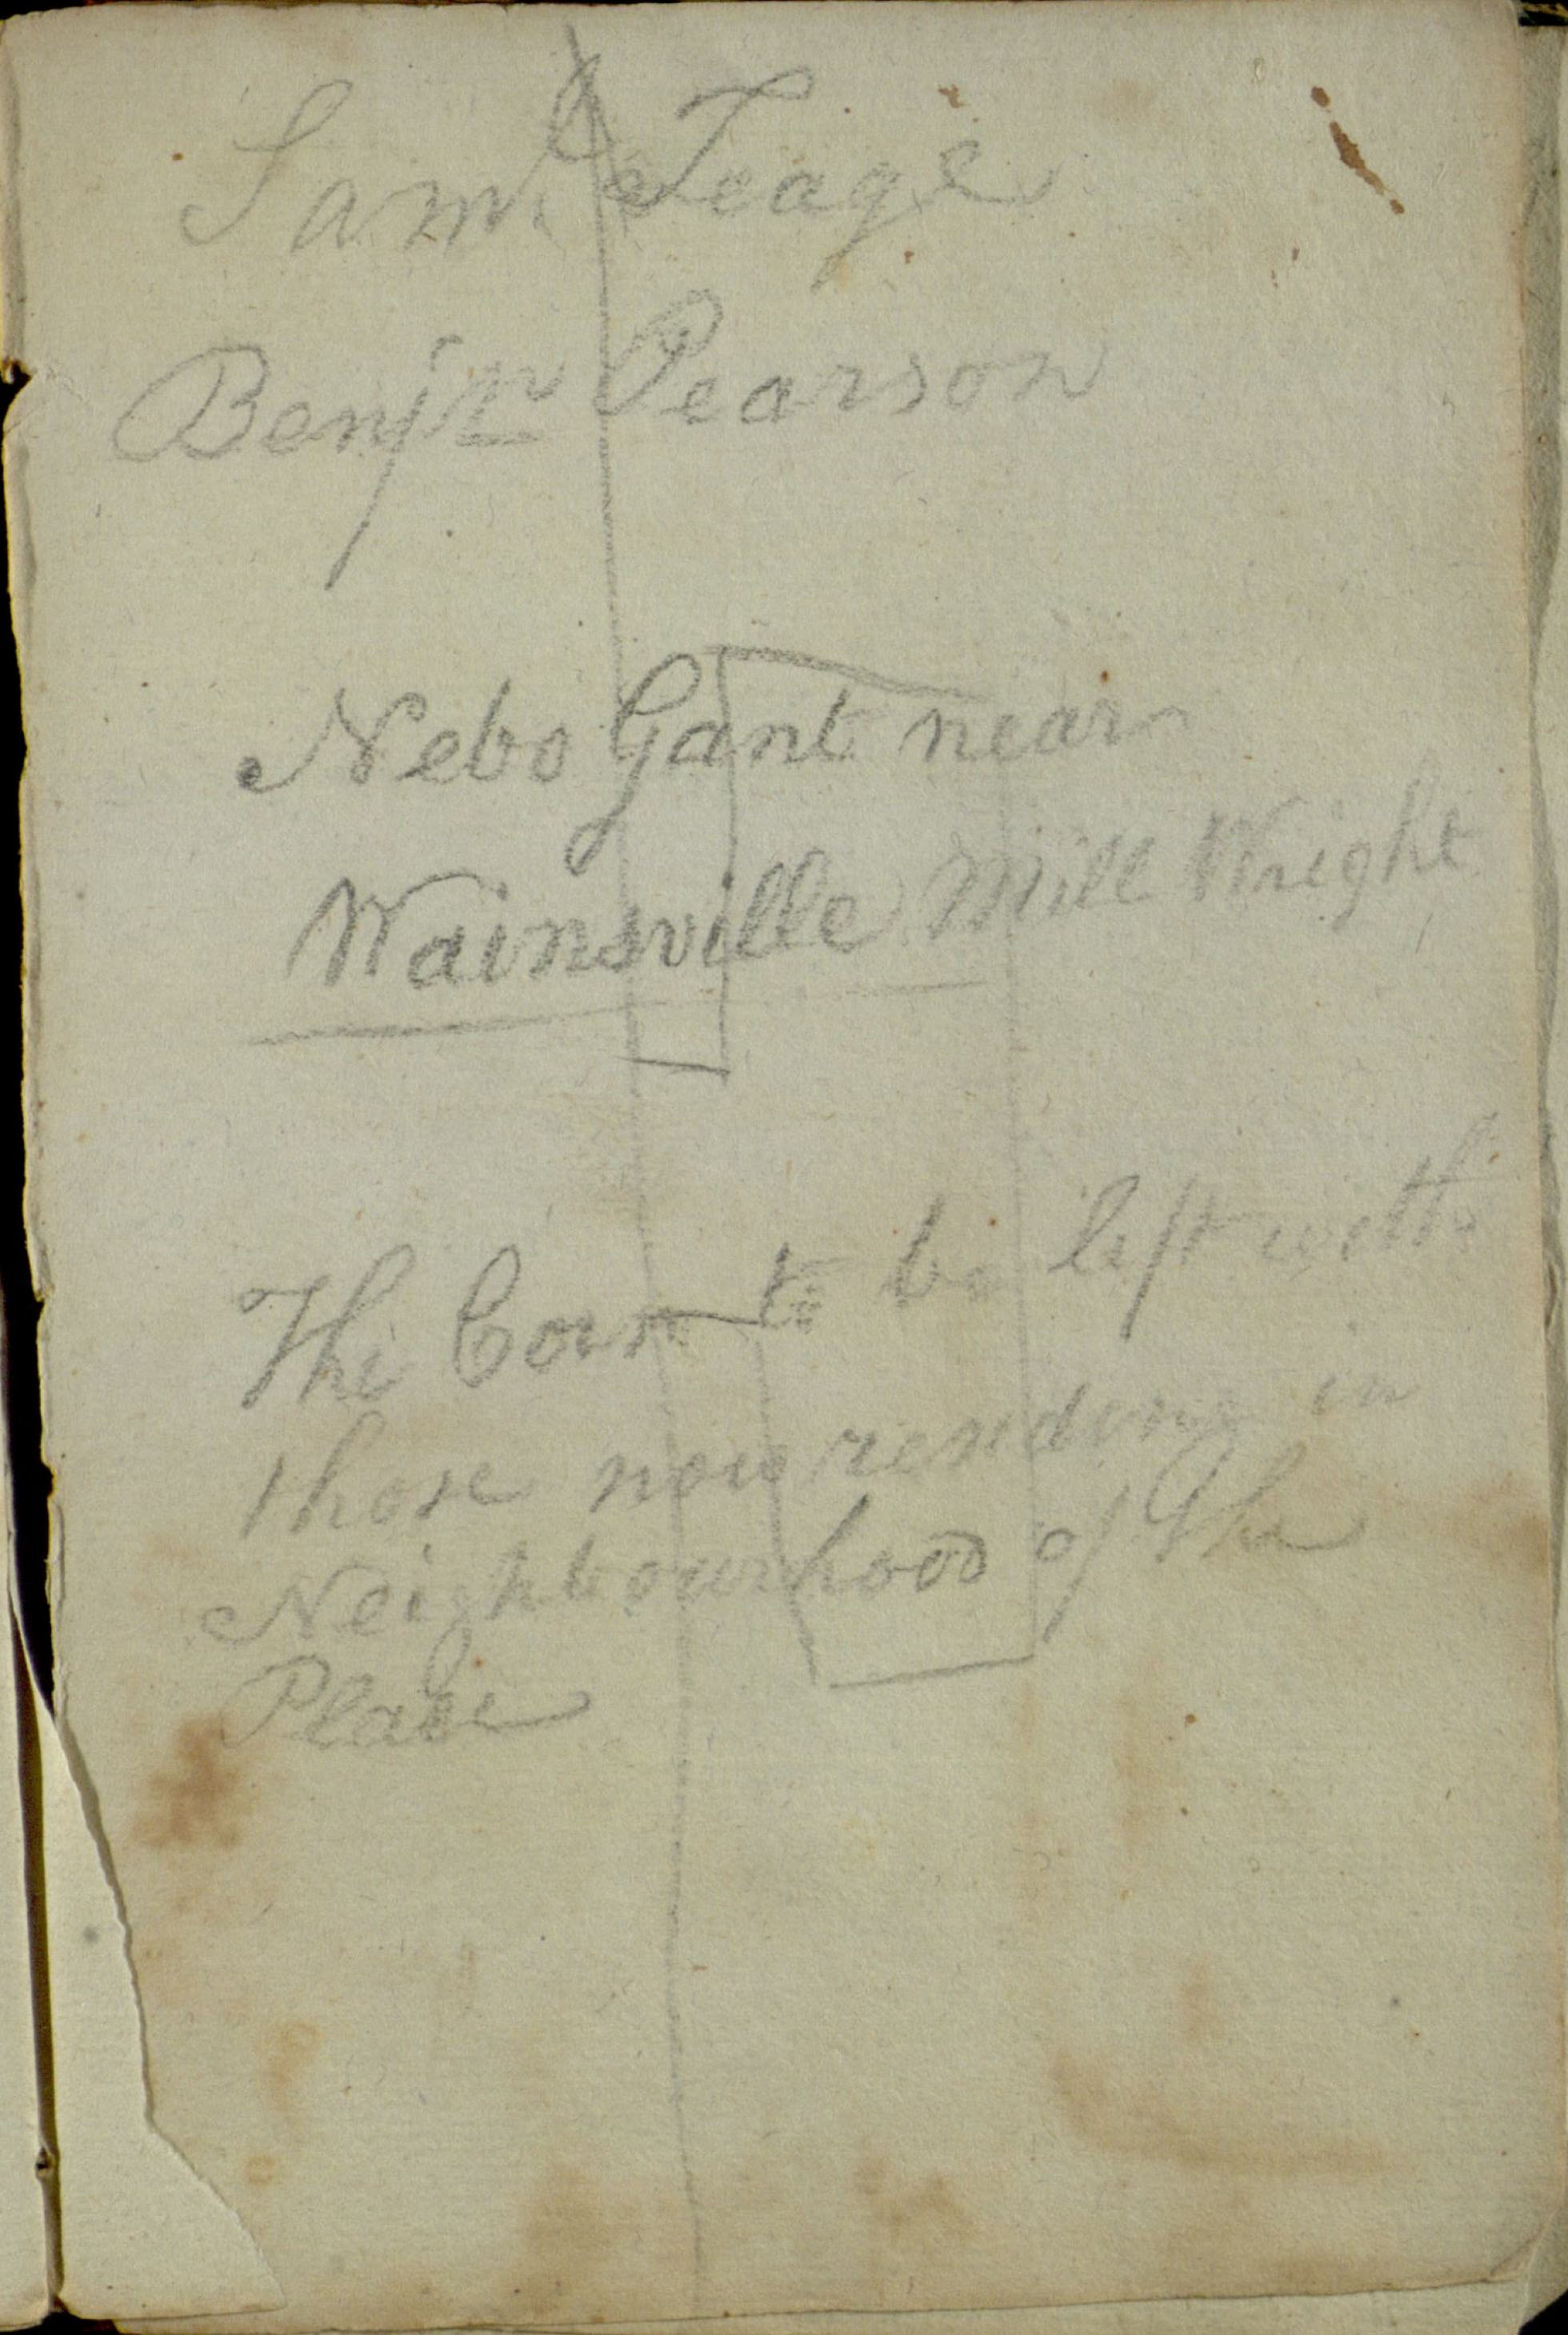 Saml Teage
Benjn Pearson
Nebo Gant near
Wainsville Mill Wright
The Corn to be left with
those now residing in
Neighbourhood of the
Place